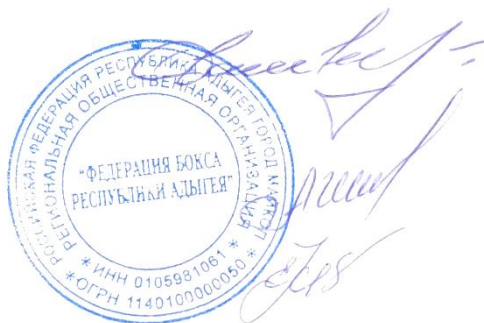 РОССИЙСКАЯ ФЕДЕРАЦИЯ РЕСПУБЛИКА АДЫГЕЯ ГОРОД МАЙКОП
РЕГИОНАЛЬНАЯ ОБЩЕСТВЕННАЯ ОРГАНИЗАЦИЯ
"ФЕДЕРАЦИЯ БОКСА
РЕСПУБЛИКИ АДЫГЕЯ"
* ИНН 0105981061 *
* ОГРН 1140100000050 *